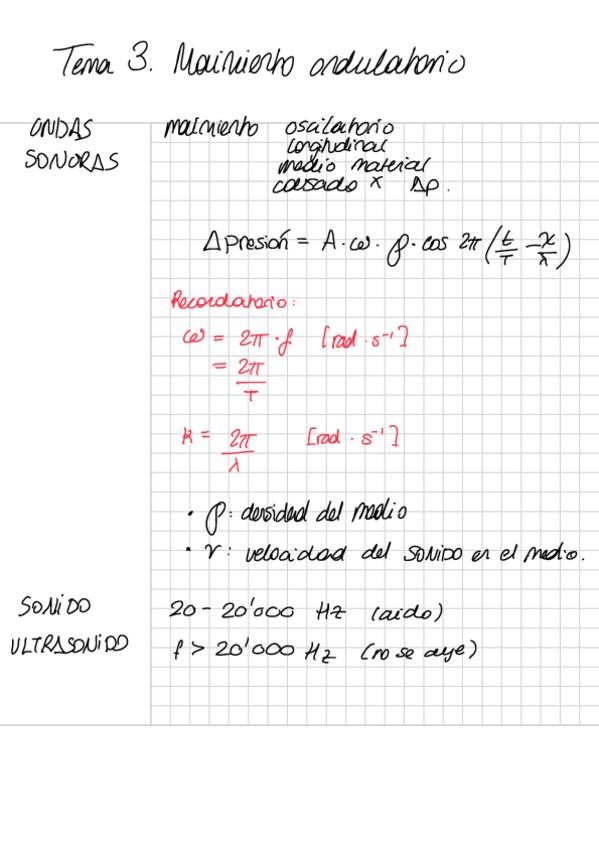 Tema 3. Movimiento ondulatorio
ONDAS SONORAS
movimiento oscilatorio
longitudinal
medio material
causado x Δp.
Δpresión = A·ω·ρ·cos 2π(t/T - x/λ)
Recordatorio:
ω = 2π·f [rad·s⁻¹]
= 2π/T
k = 2π/λ [rad·s⁻¹]
· ρ: densidad del medio
· v: velocidad del SONIDO en el medio.
SONIDO 20 - 20'000 Hz (oído)
ULTRASONIDO f > 20'000 Hz (no se oye)